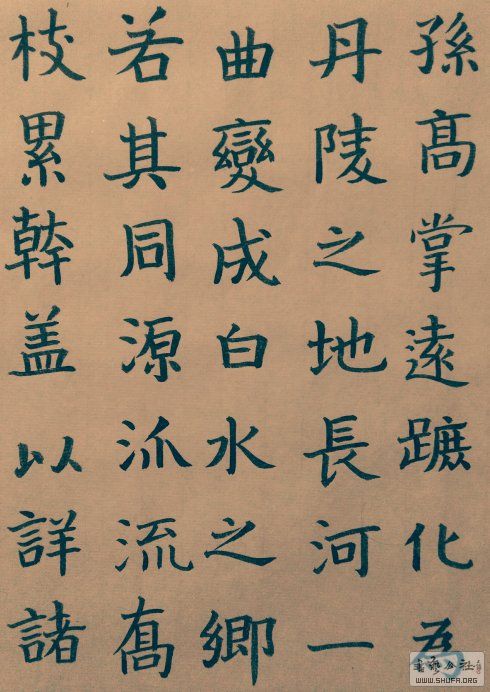 孫髙掌遠蹠化為
丹陵之地長河一
曲變成白水之鄉
若其同源派流喬
枝累幹盖以詳諸
書藝公社
WWW.SHUFA.ORG